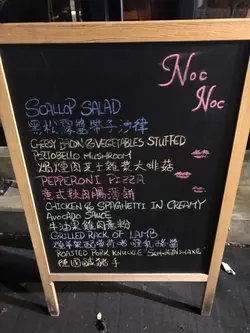 Noc
Noc
SCALLOP SALAD
黑松露醬帶子沙律
CHEESY BACON & VEGETABLES STUFFED
PORTOBELLO MUSHROOM
焗煙肉芝士雜菜大啡菇
PEPPERONI PIZZA
意式辣肉腸薄餅
CHICKEN & SPAGHETTI IN CREAMY
AVOCADO SAUCE
牛油果雞肉意粉
GRILLED RACK OF LAMB
ROASTED PORK KNUCKLE
德國鹹豬手